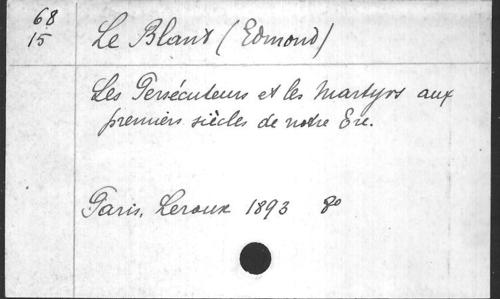 68
15
Le Blant (Edmond)
Les Persécuteurs et les Martyrs aux
premiers siècles de notre Ere.
Paris, Leroux 1893 8º